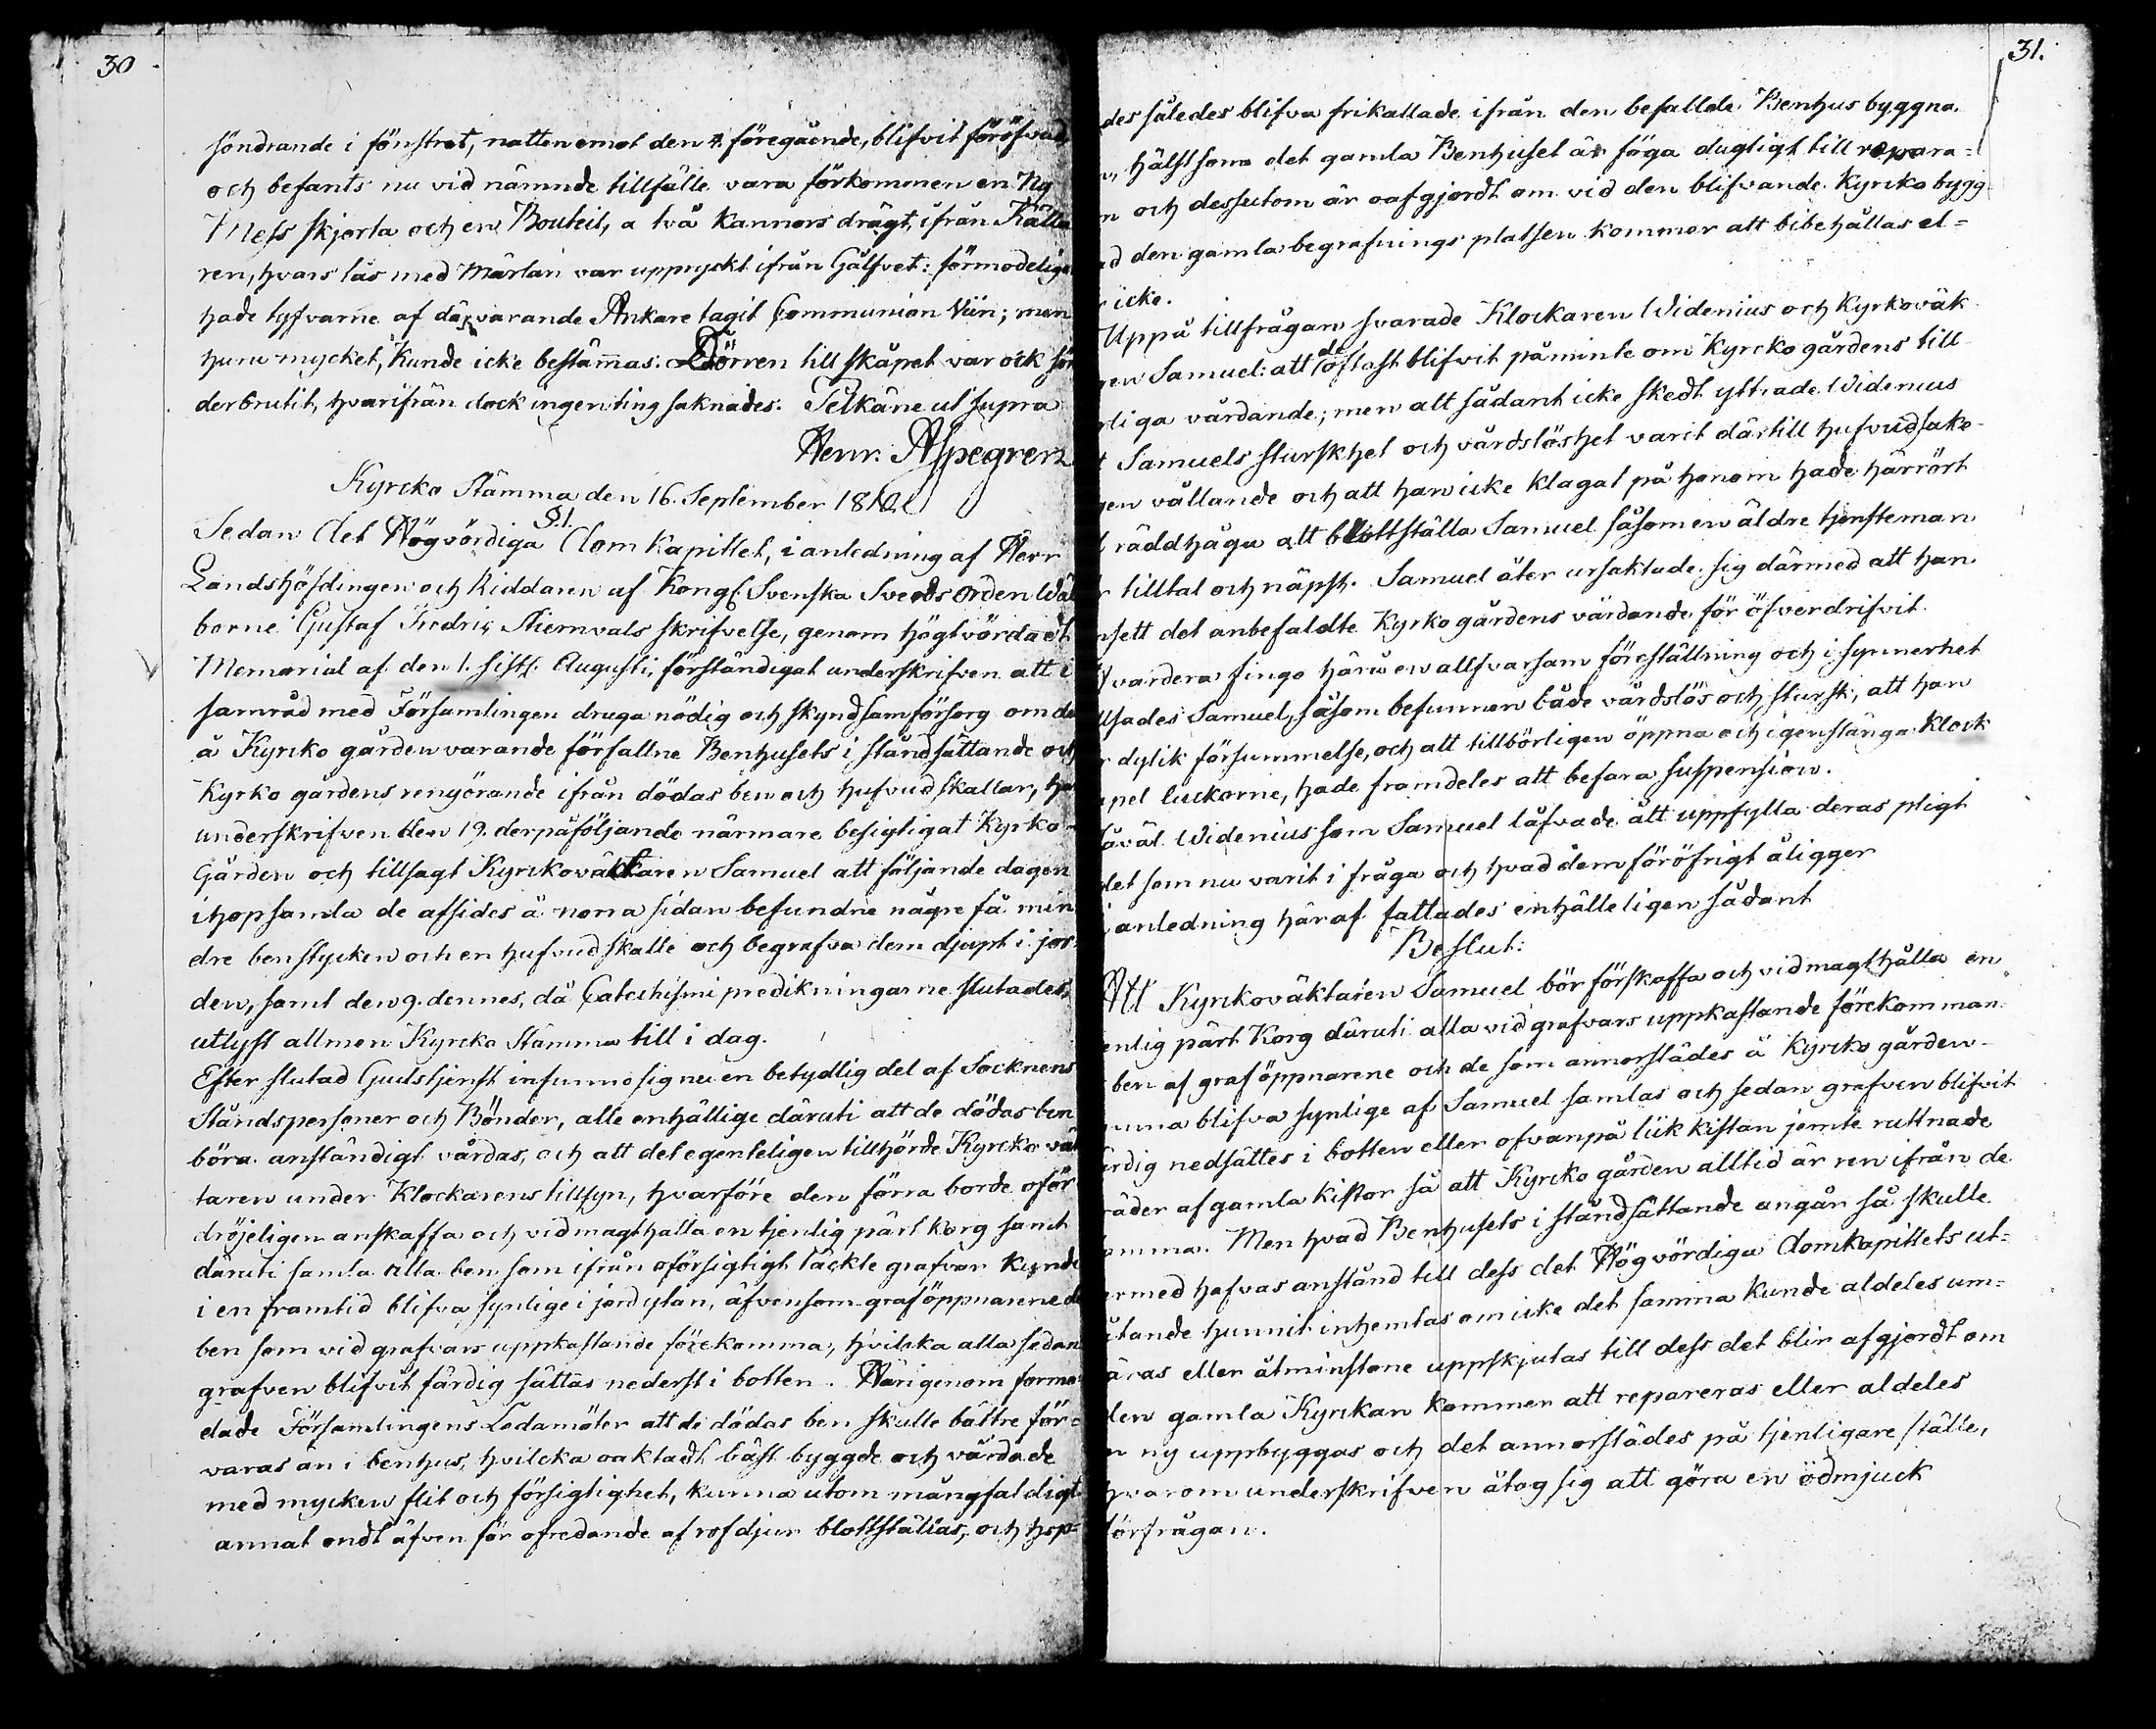 30
söndrande i fönstret, natten emot den 4 föregående, blifvit föröfvad
och befants nu vid nämnde tillfälle vara förkommen en Ny
Mess skjorta och en Bouteil, a två kannors drägt, ifrån Källa
ren, hvars lås med Märlan var uppryckt ifrån Gålfvet: förmodelige
hade tyfvarne af därvarande Ankare tagit Communion Viin; men
huru mycket, kunde icke bestämmas. Dörren till skåpet var ock sön
derbrutit, hvarifrån dock ingenting saknades. Pelkäne ut supra
Henr: Aspegren
Kyrcko Stämma den 16. September 1812
§.1.
Sedan det Högvördiga Dom Kapitlet, i anledning af Herr
Landshöfdingen och Riddaren af Kongl. Svenska Sverds Orden Wäl
borne Gustaf Fredric Stiernvals skrifvelse, genom högtvördadt
Memorial af den 1. sistl. Augusti, förständigat underskrifven att i
samråd med Församlingen draga nödig och skyndsam försorg om de
å Kyrcko gården varande förfallne Benhusets i ståndsättande och
Kyrko gårdens rengörande ifrån dödas ben och hufvudskallar, har
underskrifven den 19. derpåföljande närmare besigtigat Kyrko-
Gården och tillsagt Kyrckoväktaren Samuel att följande dagen
ihopsamla de afsides å norra sidan befundne någre få min
dre benstycken och en hufvudskalle och begrafva dem djupt i jor
den, samt den 9. dennes, då Catechismi predikningarne slutades,
utlyst allmen Kyrcko Stämma till i dag.
Efter slutad Gudstjenst infunno sig nu en betydlig del af Socknens
Ståndspersoner och Bönder, alle enhällige däruti att de dödas ben
böra anständigt vårdas, och att det egenteligen tillhörde Kyrcko väk
taren under Klockarens tillsyn, hvarföre den förra borde oför
dröjeligen anskaffa och vidmagthalla en tjenlig pärt korg samt
däruti samla alla ben som ifrån oförsigtigt täckte grafvar kunde
i en framtid blifva synlige i jordytan, äfvensom graföppnarene de
ben som vid grafvars uppkastande förekomma, hvilcka alla sedan
grafven blifvit färdig sättas nederst i botten. Härigenom förmo
dade Församlingens Ledamöter att de dödas ben skulle bättre för=
varas än i benhus, hvilcka oaktadt bäst byggde och vårdade
med mycken flit och försigtighet, kunna utom mångfaldigt
annat ondt äfven för ofredande af rofdjur blottställas, och hop=
31.
des således blifva frikallade ifrån den befallde Benhus byggna.
n, hälst som det gamla Benhuset är föga dugligt till repara=
n och dessutom är oafgjordt om vid den blifvande Kyrcko bygg
ad den gamla begrafnings platsen kommer att bibehållas el=
r icke.
Uppå tillfrågan svarade Klockaren Widenius och Kyrkoväk
ren Samuel: att de oftast blifvit påminte om Kyrcko gårdens till
rliga vårdande; men att sådant icke skedt yttrade Widenius
t Samuels sturskhet och vårdslöshet varit därtill hufvudsake-
gen vållande och att han icke klagat på honom hade härrört
räddhåga att blottställa Samuel såsom en äldre tjensteman
r tilltal och näpst. Samuel åter ursäktade sig därmed att han
nsett det anbefaldte Kyrkogårdens vårdande för öfverdrifvit.
vardera fingo häröfver en allfvarsam föreställning och i synnerhet
llsades Samuel, såsom befunnen både vårdslös och stursk, att han
r dylik försummelse, och att tillbörligen öppna och igenstänga Klock
apel luckorne, hade framdeles att befara suspension.
Såväl Widenius som Samuel låfvade att uppfylla deras pligt
det som nu varit i fråga och hvad dem föröfrigt åligger
i anledning häraf fattades enhälleligen sådant
Beslut:
Att Kyrckoväktaren Samuel bör förskaffa och vidmagthålla en
enlig pärt Korg däruti alla vid grafvars uppkastande förekomman
ben af graföppnarene och de som annorstädes å Kyrcko gården
unna blifva synlige af Samuel samlas och sedan grafven blifvit
ärdig nedsättes i botten eller ofvanpå lik kistan jemte ruttnade
räder af gamla kistor så att Kyrcko gården alltid är ren ifrån de
amma. Men hvad Benhusets i ståndsättande angår så skulle
ermed hafvas anstånd till dess det Högvördiga Domkapitlets ut=
låtande hunnit inhemtas om icke det samma kunde aldeles um=
äras eller åtminstone uppskjutas till dess det blir afgjordt om
den gamla Kyrckan kommer att repareras eller aldeles
n ny uppbyggas och det annorstädes på tjenligare ställe,
hvarom underskrifven åtog sig att göra en ödmjuck
förfrågan.